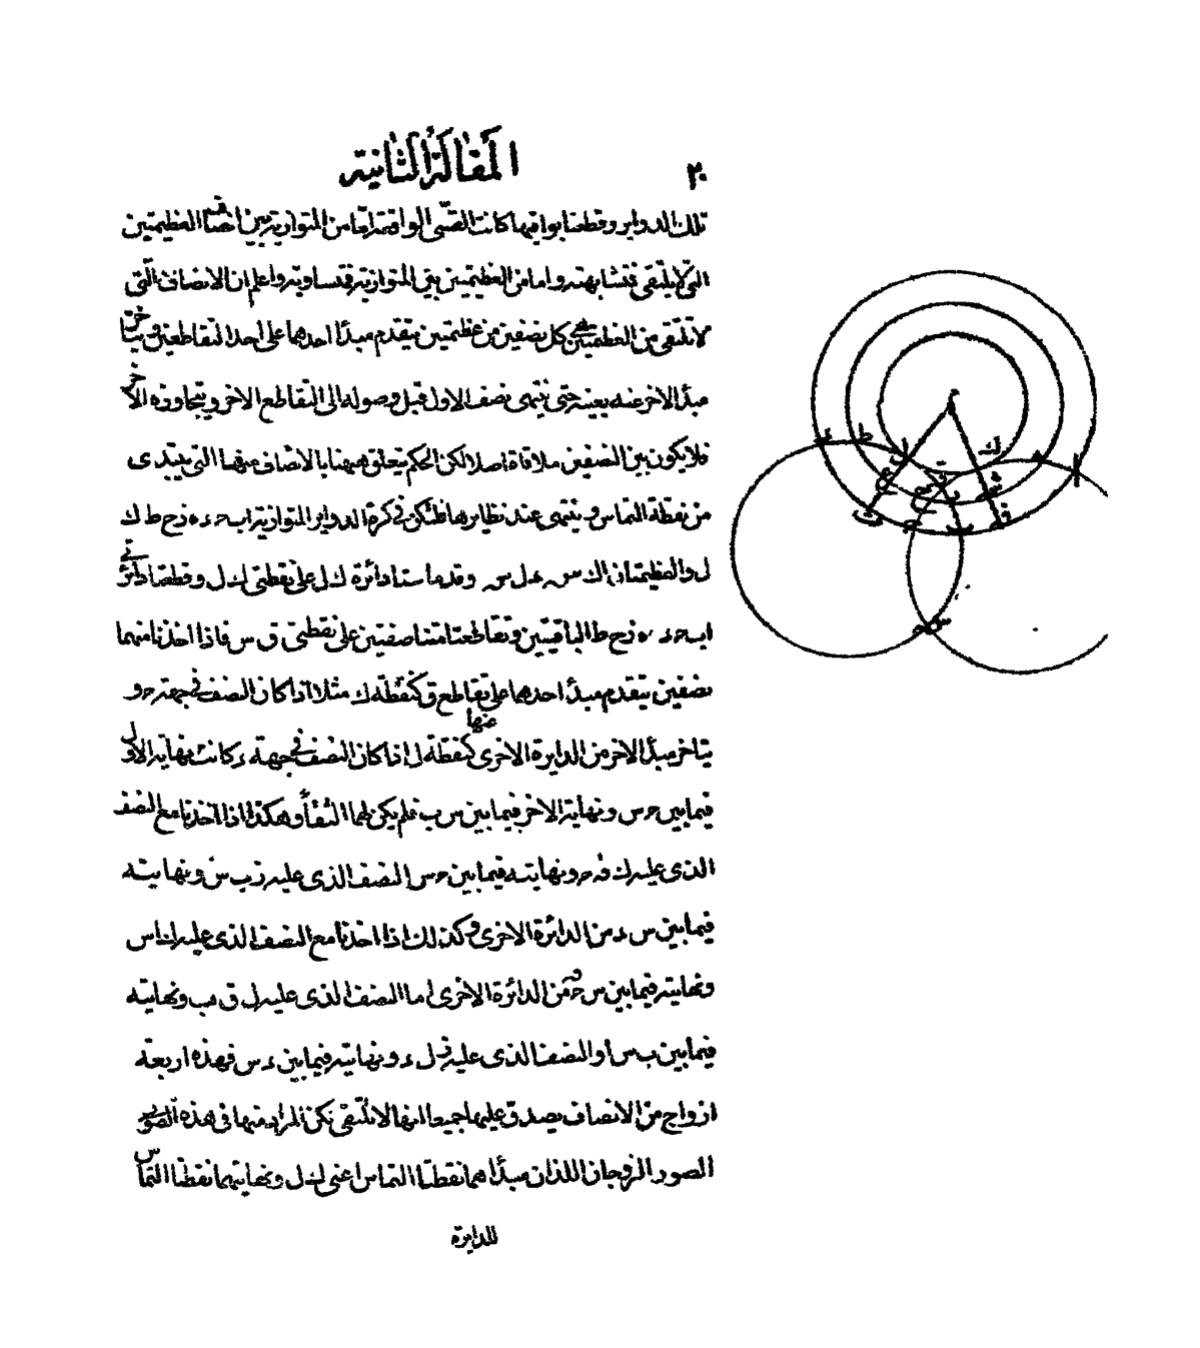 المقالة الثانية
٢٠
تلك الدواير وقطعتا بواقيها كانت القسي الواقعة اما من المتوازية بين انصاف العظيمتين
التي لا يلتقي فمتشابهة واما من العظيمتين بقي المتوازية فمتساوية واعلم ان الانصاف التي
لا تلتقي من العظيمتين هي كل نصفين من عظيمتين يتقدم مبدأ احدهما على احد التقاطعين ويتأخر
مبدأ الاخر عنه بعينه حتى ينتهى نصف الاول قبل وصوله الى التقاطع الاخر ويتجاوزه الاخر
فلا يكون بين النصفين ملاقاة اصلا لكن الحكم يتعلق ههنا بالانصاف منها التي يبتدى
من نقطة التماس وينتهى عند نظايرها فلتكن في كرة الدواير المتوازية اب حء ه زح ط ك
ل والعظيمتان ا ك س م ل س وقد ماستا دائرة ك ل على نقطتي ك ل وقطعتا دائرتي
اب حء ه زح ط الباقيتين وتقاطعتا متناصفتين على نقطتي ق س فاذا اخذنا منهما
نصفين يتقدم مبدأ احدهما على تقاطع ق كنقطة ك مثلا اذا كان النصف في جهة ح و
عنها
يتاخر مبدأ الاخر من الدايرة الاخرى كنقطة ل اذا كان النصف في جهة ء كانت نهاية الاول
فيما بين ح س ونهاية الاخر فيما بين س ب فلم يكن لهما التقأ وهكذا اذا اخذنا مع النصف
الذى عليه ك ق ح ونهايته فيما بين ح س النصف الذى عليه ز ب س ونهايته
فيما بين س ء من الدائرة الاخرى وكذلك اذا اخذنا مع النصف الذى عليه ك ا س
ونهايته فيما بين س ح من الدائرة الاخرى اما النصف الذى عليه ل ق ب ونهايته
فيما بين ب س او النصف الذى عليه ل ء ونهايته فيما بين ء س فهذه اربعة
ازواج من الانصاف يصدق عليها جميعا انها لا تلتقى لكن المراد منها في هذه الصورة
الصور الزوجان اللذان مبدأهما نقطتا التماس اعنى ك ل ونهايتهما نقطتا التماس
للدايرة